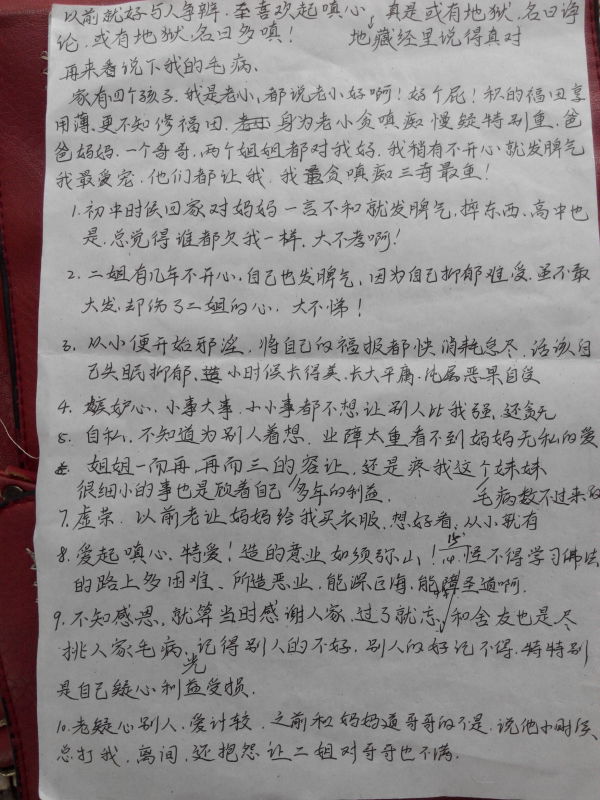 以前就好与人争辨.至喜欢起嗔心,真是或有地狱,名曰诤
论,或有地狱,名曰多嗔! 地藏经里说得真对
再来看说下我的毛病.
家有四个孩子.我是老小,都说老小好啊!好个屁!积的福田享
用薄.更不知修福田.身为老小贪嗔痴慢疑特别重.爸
爸妈妈.一个哥哥,两个姐姐都对我好.我稍有不开心就发脾气
我最受宠.他们都让我.我最贪嗔痴三毒最重!
1.初中时候回家对妈妈一言不和就发脾气.摔东西.高中也
是.总觉得谁都欠我一样.大不孝啊!
2.二姐有几年不开心.自己也发脾气,因为自己抑郁难受.虽不敢
大发.却伤了二姐的心.大不悌!
3.从小便开始邪淫.将自己的福报都快消耗怠尽.活该自
己失眠抑郁.小时候长得美.长大平庸.纯属恶果自受
4.嫉妒心.小事大事.小小事都不想让别人比我强.还贪
5.自私.不知道为别人着想.业障太重看不到妈妈无私的爱
姐姐一而再.再而三的容让.还是疼我这个妹妹
很细小的事也是顾着自己多年的利益. 毛病数不过来的
7.虚荣.以前老让妈妈给我买衣服.想好看.从小就有
8.爱起嗔心.特爱!造的意业如须弥山!怪不得学习佛法
的路上多困难、所造恶业.能深巨海,能障圣道啊.
9.不知感恩.就算当时感谢人家.过了就忘.和舍友也是尽
挑人家毛病.光记得别人的不好.别人的好记不得.特特别
是自己疑心利益受损.
10.老疑心别人.爱计较.之前和妈妈道哥哥的不是.说他小时候
总打我.离间.还抱怨让二姐对哥哥也不满.